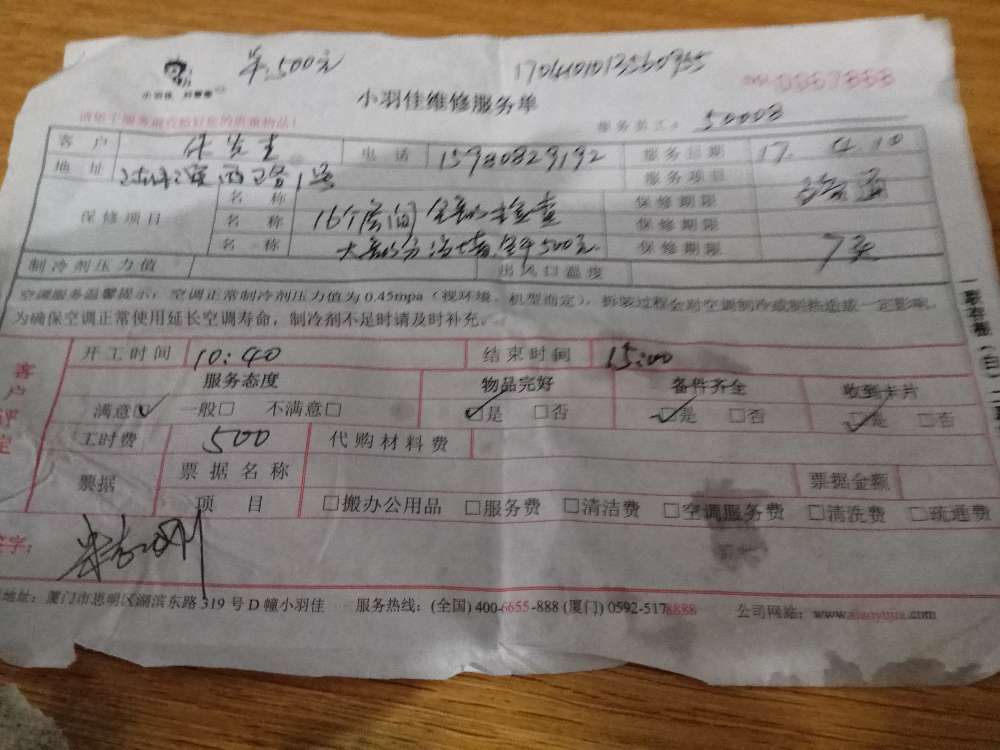 单:500元
小羽佳维修服务单
服务员工: 50008
客户 电话 15980829192 服务日期 17. 4.10
地址 服务项目
保修项目 名称 保修期限
名称 16个房间全部检查 保修期限
名称 保修期限 7天
制冷剂压力值 出风口温度
空调服务温馨提示:空调正常制冷剂压力值为0.45mpa(视环境、机型而定),拆装过程会对空调制冷或制热造成一定影响。
为确保空调正常使用延长空调寿命,制冷剂不足时请及时补充。
客户评定
开工时间 10:40 结束时间 15:00
服务态度 物品完好 备件齐全 收到卡片
满意☑ 一般□ 不满意□ ☑是 □否 ☑是 □否 ☑是 □否
工时费 500 代购材料费
票据 票据名称 票据金额
项目 □搬办公用品 □服务费 □清洁费 □空调服务费 □清洗费 □疏通费
签字:
地址:厦门市思明区湖滨东路319号D幢小羽佳 服务热线:(全国)400-6655-888(厦门)0592-5178888 公司网站:www.xiaoyujia.com